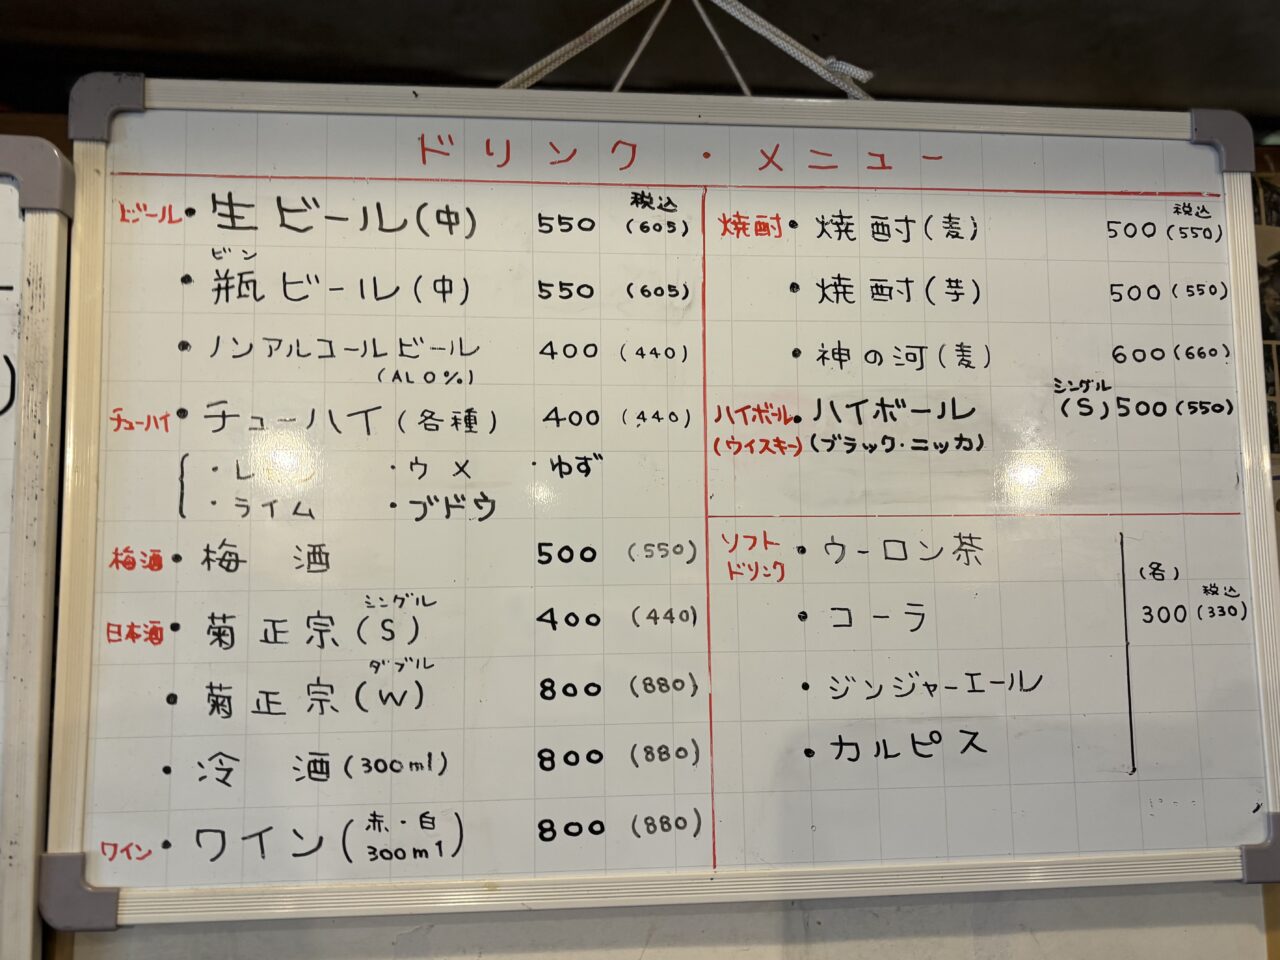 ドリンク・メニュー
税込
ビール ・生ビール(中) 550 (605)
ビン
・瓶ビール(中) 550 (605)
・ノンアルコールビール 400 (440)
(AL 0%)
チューハイ ・チューハイ(各種) 400 (440)
・レ ・ウメ ・ゆず
・ライム ・ブドウ
梅酒 ・梅 酒 500 (550)
シングル
日本酒 ・菊正宗(S) 400 (440)
ダブル
・菊正宗(W) 800 (880)
・冷 酒(300ml) 800 (880)
ワイン ・ワイン(赤・白 300ml) 800 (880)
税込
焼酎 ・焼酎(麦) 500 (550)
・焼酎(芋) 500 (550)
・神の河(麦) 600 (660)
シングル
ハイボール ・ハイボール (S) 500 (550)
(ウイスキー) (ブラック・ニッカ)
ソフト ・ウーロン茶
ドリンク
(各)
税込
・コーラ 300 (330)
・ジンジャーエール
・カルピス